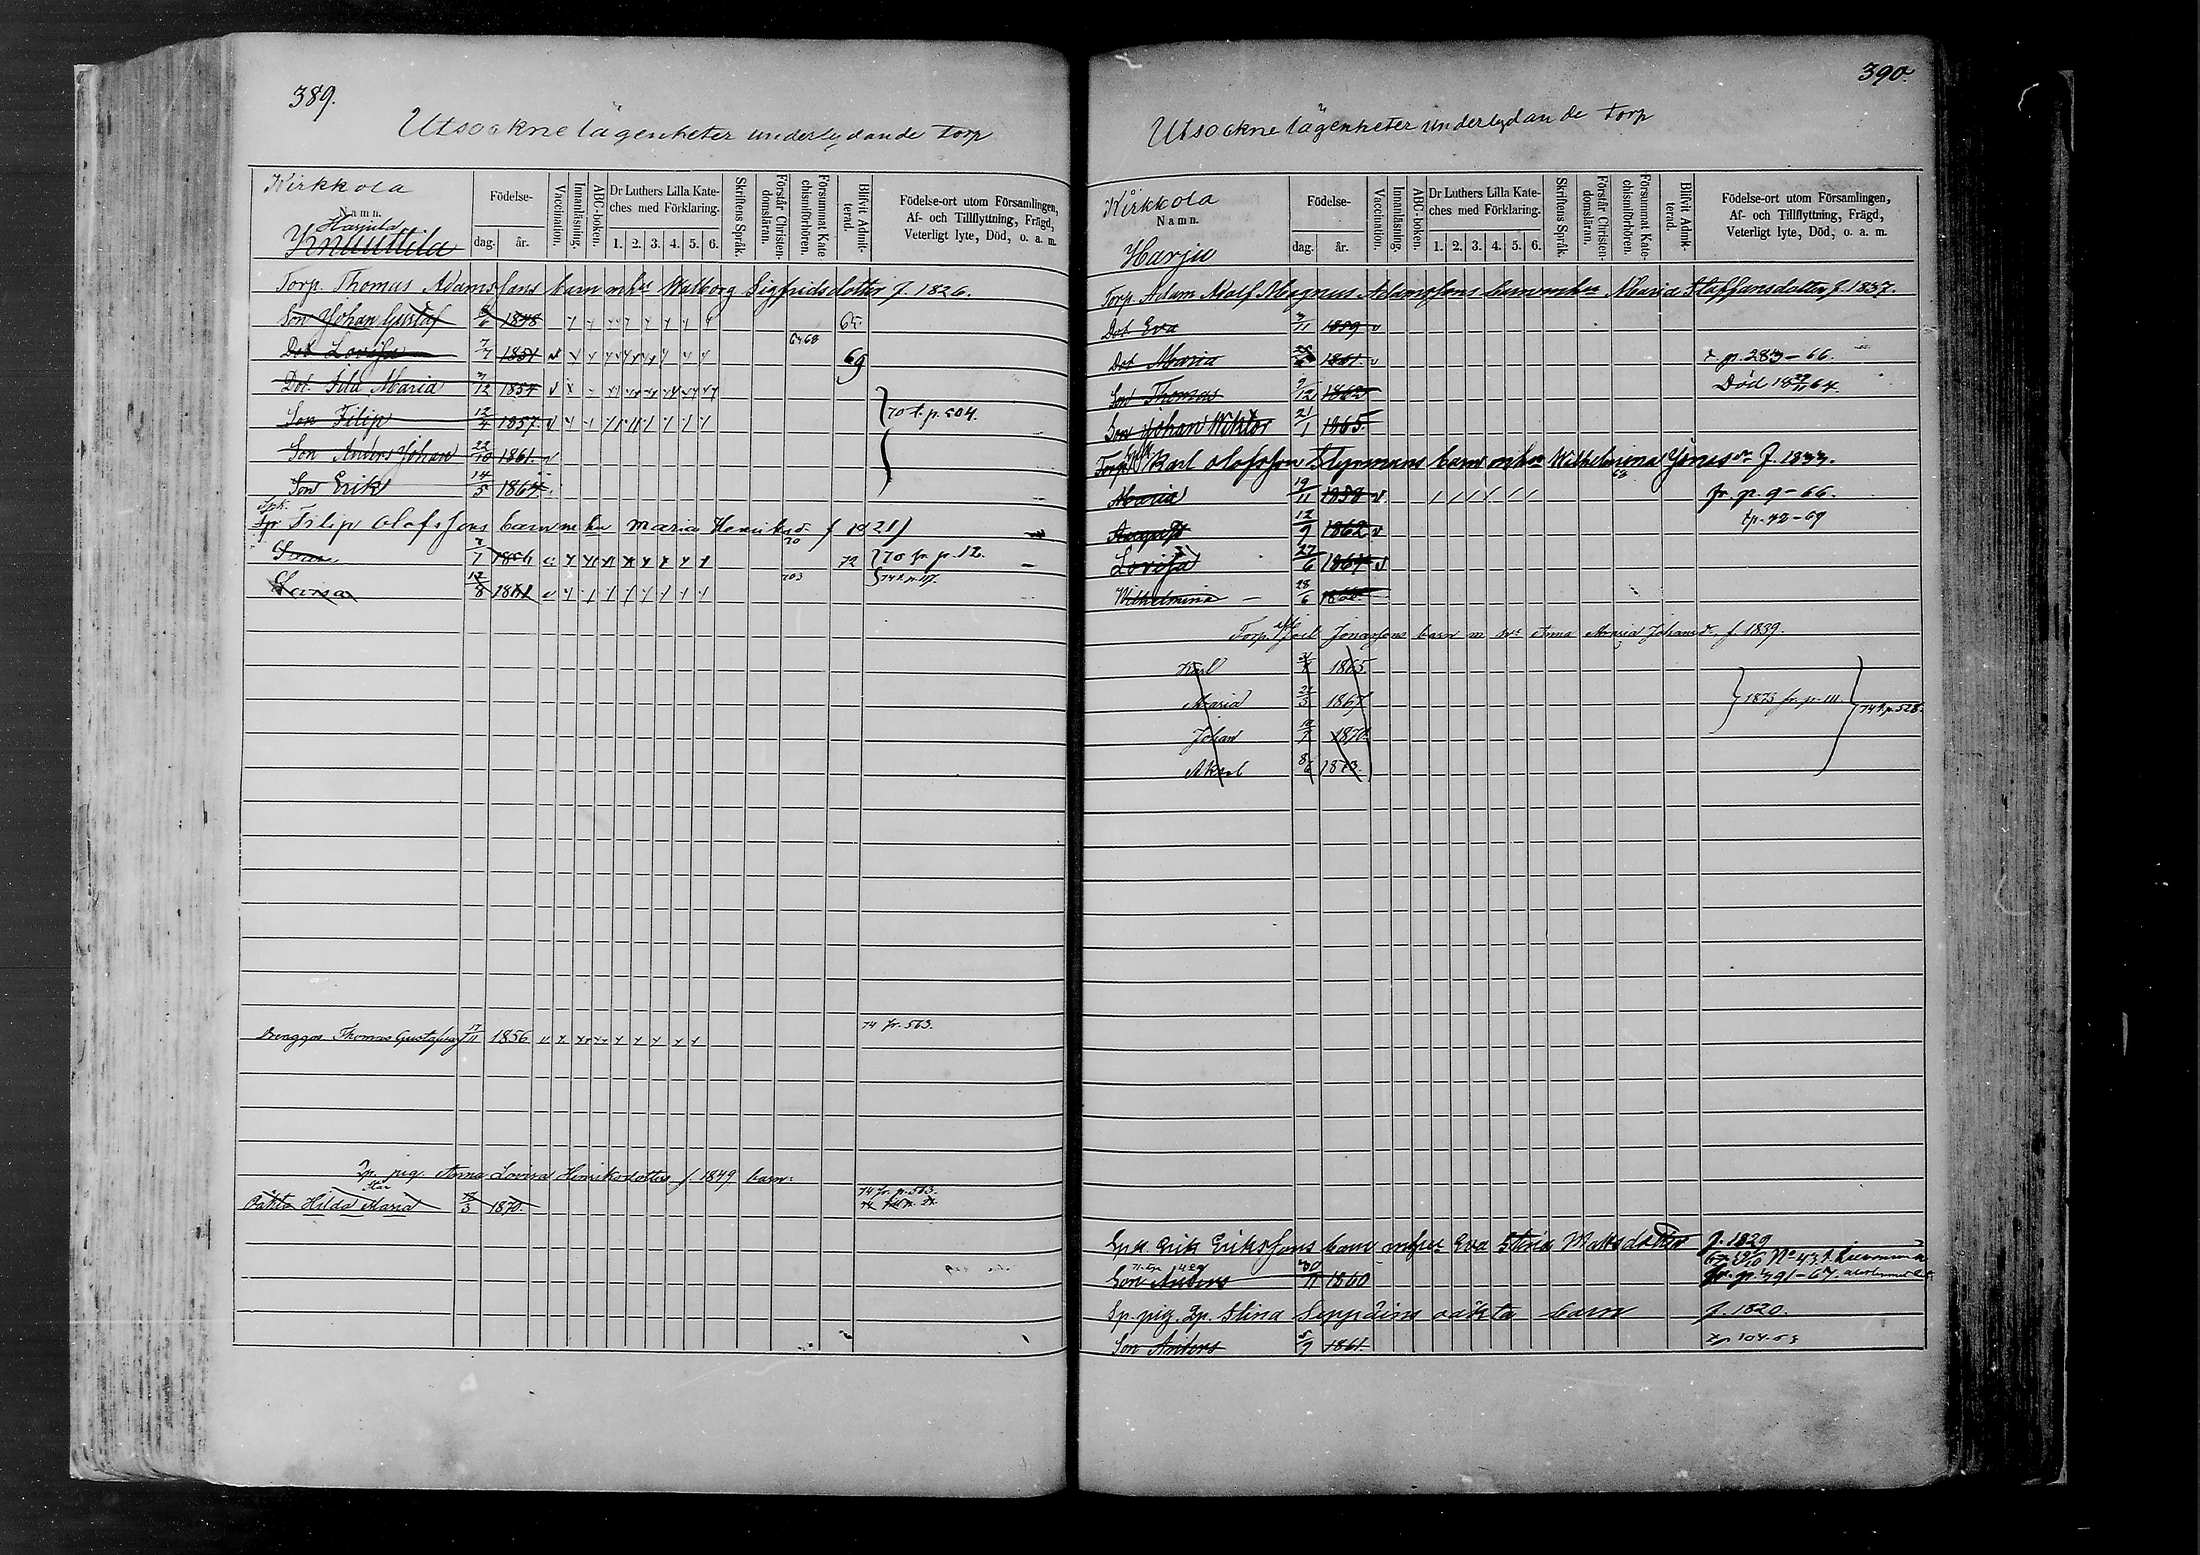 389.
Utsockne lägenheter underlydande torp
Kirkkola
Namn.
Harjula
Knuuttila
Födelse-
dag. år.
Vaccination.
Innanläsning.
ABC-boken.
Dr Luthers Lilla Kate-
ches med Förklaring.
1. 2. 3. 4. 5. 6.
Skriftens Språk.
Förstår Christen-
domsläran.
Försummat Kate-
chismiförhören.
Blifvit Admit-
terad.
Födelse-ort utom Församlingen,
Af- och Tillflyttning, Frägd,
Veterligt lyte, Död, o. a. m.
Torp. Thomas Adamssons barn m hu Walborg Sigfridsdotter f. 1826.
Son Johan Gustaf 1848 65
Dot Lovisa 7/7 1851 6768 69
Dot. Maria 1854
Son Filip 12/4 1857 70 t. p. 504.
Son Anders Johan 22/10 1861
Son Erik 14/5 1864
Filip Olofssons barn m hu Maria Henriksd f 1821
1856 72 70 fr p. 12.
Lovisa 12/8 1861
Drenggos. Thomas Gustafsson 17/11 1856 74 fr. 563.
pig. Anna Lovisa Henriksdotters f. 1849 barn:
Oäkta Hilda Maria 1870. 74 fr. p. 563.
390.
Utsockne lägenheter underlydande torp
Kirkkola
Namn.
Harju
Födelse-
dag. år.
Vaccination.
Innanläsning.
ABC-boken.
Dr Luthers Lilla Kate-
ches med Förklaring.
1. 2. 3. 4. 5. 6.
Skriftens Språk.
Förstår Christen-
domsläran.
Försummat Kate-
chismiförhören.
Blifvit Admit-
terad.
Födelse-ort utom Församlingen,
Af- och Tillflyttning, Frägd,
Veterligt lyte, Död, o. a. m.
Torp. Adam Adolf Magnus Adamssons barn m hu Maria Staffansdotter f. 1837.
Dot Eva 1859
Dot Maria 1861 t. p. 283 - 66.
Son Thomas 9/12 1862 Död 18 64
Son Johan Wiktor 21/1 1865
Torp. Karl Olofsson barn m hu Wilhelmina Jonasdr f. 1833.
Maria 19/11 1858 fr. p. 9 - 66.
August 12/9 1862 tp. 42 - 69
Lovisa 27/6 1864
Wilhelmina 28/6
Torp. Joel Jonassons barn m hu Anna Maria Johansdr. f. 1839.
Karl 1865
Maria 1867 1873 fr. p. 111. 74 t. p. 528.
Johan 1870
Axel 8/6 1873.
Erik Erikssons barn m hu Eva Stina Matsdotter f. 1829
Son Anders 30/11 1860 fr. p. 391 - 67.
Sp. pig. Stina Seppäins oäkta barn f. 1820.
Son Anders 5/9 1861.